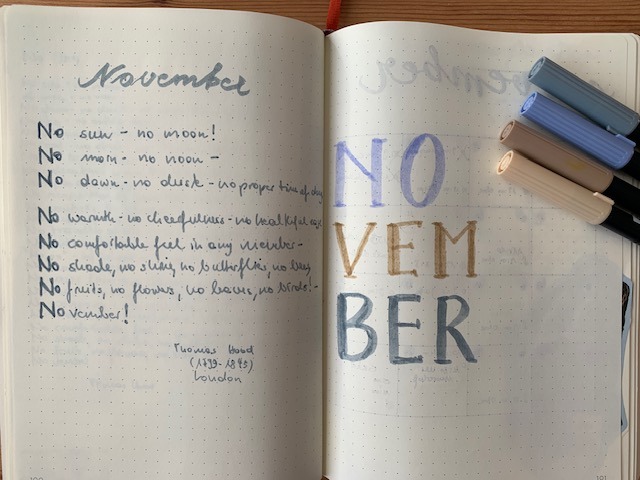 November
No sun - no moon!
No morn - no noon -
No dawn - no dusk - no proper time of day
No warmth - no cheerfulness - no healthful ease
No comfortable feel in any member -
No shade, no shine, no butterflies, no bees
No fruits, no flowers, no leaves, no birds! -
November!
Thomas Hood
(1799-1845)
London
NO
VEM
BER
190
191